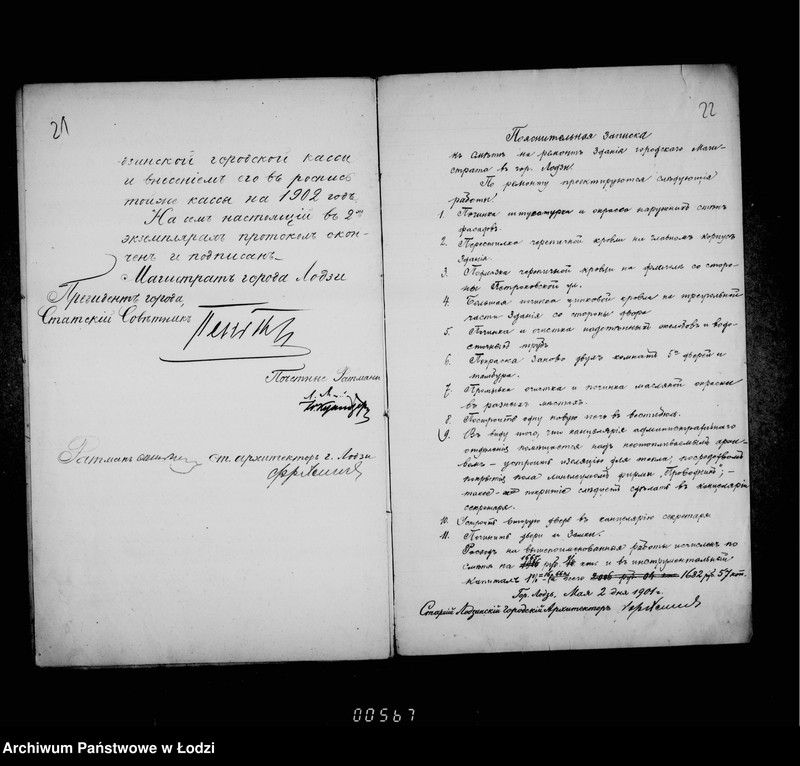 21
дзинской городской кассы
и внесеніемъ его въ роспись
тойже кассы на 1902 годъ.
На семъ настоящій въ 2хъ
экземплярахъ протоколъ окон-
ченъ и подписанъ
Магистратъ города Лодзи
Президентъ города,
Статскій Совѣтникъ
Почетные Ратманы
Ратманъ
ст. архитекторъ г. Лодзи
22
Пояснительная записка
къ смѣтѣ на ремонтъ зданія городского Маги-
страта въ гор. Лодзи.
По ремонту проектируются слѣдующія
работы:
1. Починка штукатурки и окраска наружныхъ стѣнъ
фасадовъ.
2. Перестилка черепичной кровли на главномъ корпусѣ
зданія.
3. черепичной кровли на флигелѣ со сторо-
ны Петроковской ул.
4. Большая починка цинковой кровли на треугольной
части зданія со стороны двора
5. Починка и очистка надстѣнныхъ желобовъ и водо-
сточныхъ трубъ
6. Покраска заново двухъ комнатъ 5ти дверей и
тамбура.
7. Промывка очистка и починка масляной окраски
въ разныхъ мѣстахъ.
8. Построить одну новую печь въ
9. Въ виду того, что канцелярія административнаго
отдѣленія помѣщается надъ неотопливаемымъ
устроить изоляцію для тепла, посредствомъ
покрытія пола фирмы „Проводникъ“; –
такое покрытіе слѣдуетъ сдѣлать въ канцеляріи
секретаря.
10. Устроить вторую дверь въ канцелярію секретаря
11. Починить двери и замки.
Расходъ на вышепоименованныя работы исчисленъ по
смѣтѣ на руб. коп. и въ инструментальный
капиталъ 1% всего 1682 руб. 57 коп.
Гор. Лодзь, Мая 2 дня 1901 г.
Старшій Лодзинскій Городской Архитекторъ
00567
Archiwum Państwowe w Łodzi